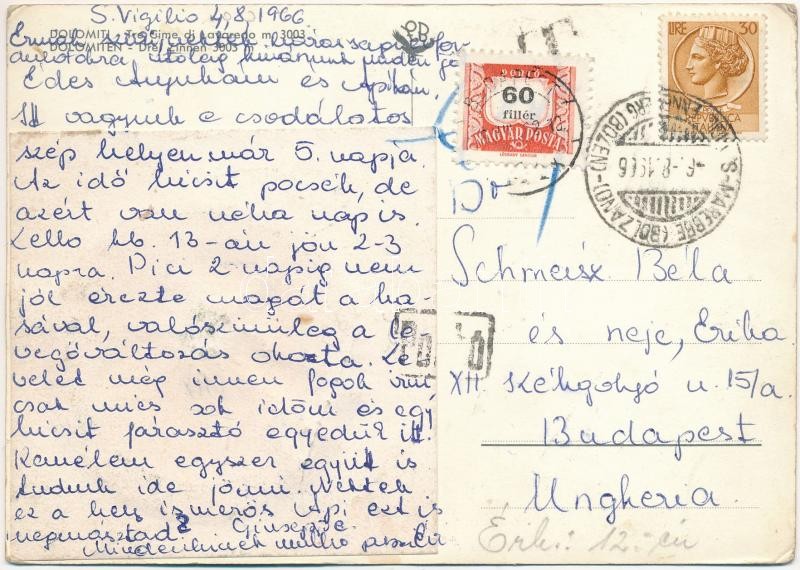 S. Vigilio 4,8, 1966
DOLOMITI - Tre Cime di Lavaredo m 3003
DOLOMITEN - Drei Zinnen 3003 m
Édes Anyukám és Apikám.
Itt vagyunk e csodálatos
szép helyen már 5. napja.
Az idő kicsit pocsék, de
azért van néha nap is.
Lello kb. 13-án jön 2-3
napra. Pici 2 napig nem
jól érezte magát a ha-
sával, valószinüleg a le-
vegőváltozás okozta. Le-
velet még innen fogok irni
csak nincs sok időm és egy
kicsit fárasztó egyedül itt.
Remélem egyszer együtt is
tudunk ide jönni. Nektek
ez a hely ismerős Api ezt is
megmászta
Giuseppe
Mindenkinek millió puszi
PORTÓ
60
fillér
MAGYAR POSTA
LIRE 30
S. MAREBBE (BOLZANO)
-6.-8.1966
T
Dr
Schmeisz Béla
és neje, Erika
XII. Székgolyó u. 15/a.
Budapest
Ungheria
PORTÓ
Erk.: 12.-én